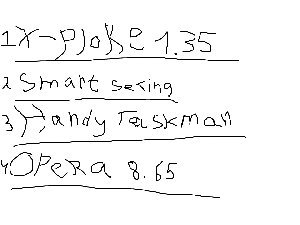 1 X-plore 1.35
2 Smart seting
3 Handy Taskman
4 Opera 8.65